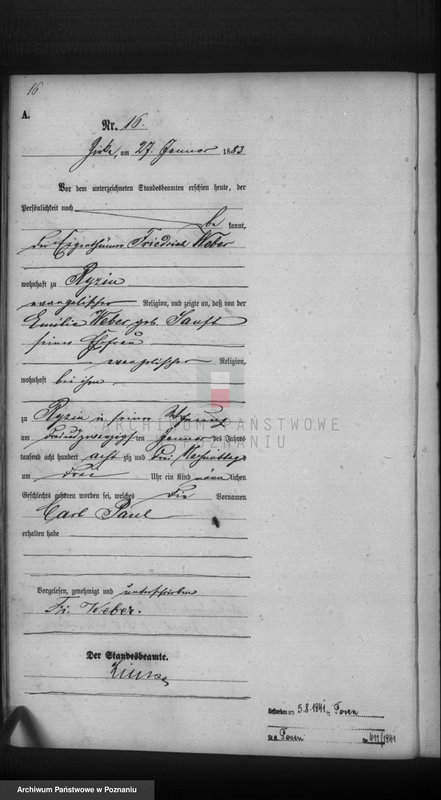 16
A.
Nr. 16.
Zirke, am 27. Januar 1883
Vor dem unterzeichneten Standesbeamten erschien heute, der
Persönlichkeit nach
be kannt,
der Eigenthümer Friedrich Weber
wohnhaft zu Ryzin
evangelischer Religion, und zeigte an, daß von der
Emilie Weber geb. Sanft
seiner Ehefrau
evangelischer Religion,
wohnhaft bei ihm,
zu Ryzin in seiner Wohnung
am dreiundzwanzigsten Januar des Jahres
tausend acht hundert acht zig und drei Nachmittags
um drei Uhr ein Kind männ lichen
Geschlechts geboren worden sei, welches die Vornamen
Carl Paul
erhalten habe
Vorgelesen, genehmigt und unterschrieben
Fr. Weber.
Der Standesbeamte.
Gestorben am 5.8.1941 in Posen
StA Posen Nr. 611/1941
ARCHIWUM PAŃSTWOWE
W POZNANIU
Archiwum Państwowe w Poznaniu